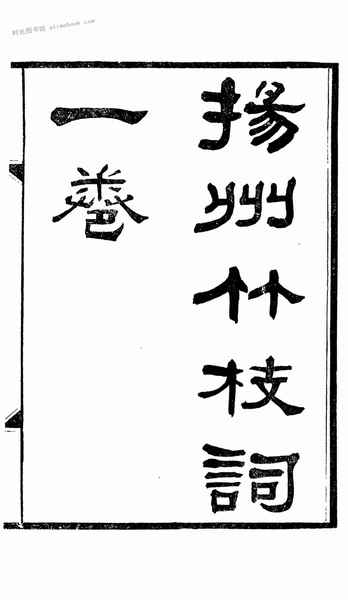 揚州竹枝詞
一卷